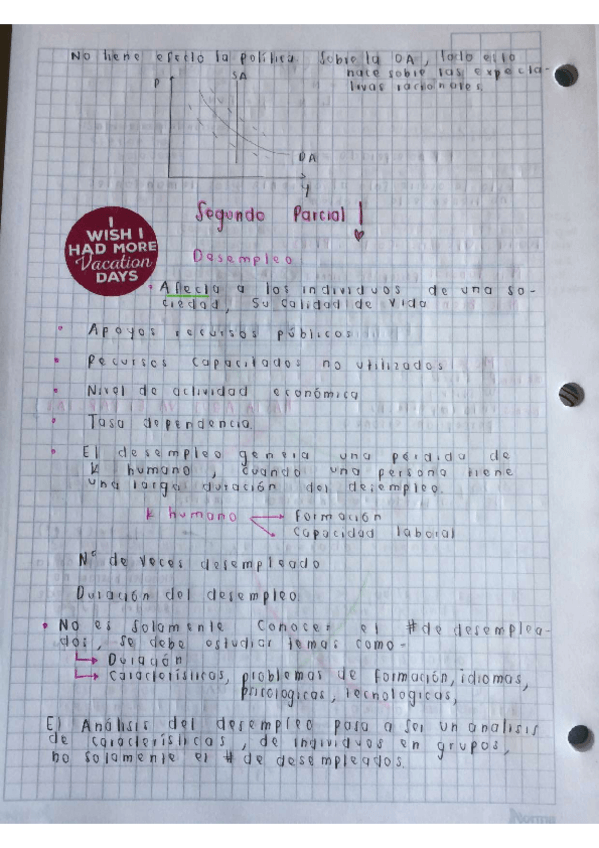 No tiene efecto la política sobre la DA, todo esto
hace sobre las expecta-
tivas racionales.
P
SA
DA
Y
Segundo Parcial!
I
WISH I
HAD MORE
Vacation
DAYS
Desempleo
• Afecta a los individuos de una so-
ciedad, su calidad de vida
• Apoyos recursos públicos
• Recursos capacitados no utilizados
• Nivel de actividad económica
• Tasa dependencia.
• El desempleo genera una perdida de
K humano, cuando una persona tiene
una larga duración del desempleo.
K humano → Formación
→ capacidad laboral
N° de veces desempleado
Duración del desempleo
• No es solamente conocer el # de desemplea-
dos, se debe estudiar temas como-
→ Duración
→ características, problemas de formación, idiomas,
psicologicas, tecnologicas,
El Análisis del desempleo pasa a ser un analisis
de características, de individuos en grupos,
no solamente el # de desempleados.
Norma